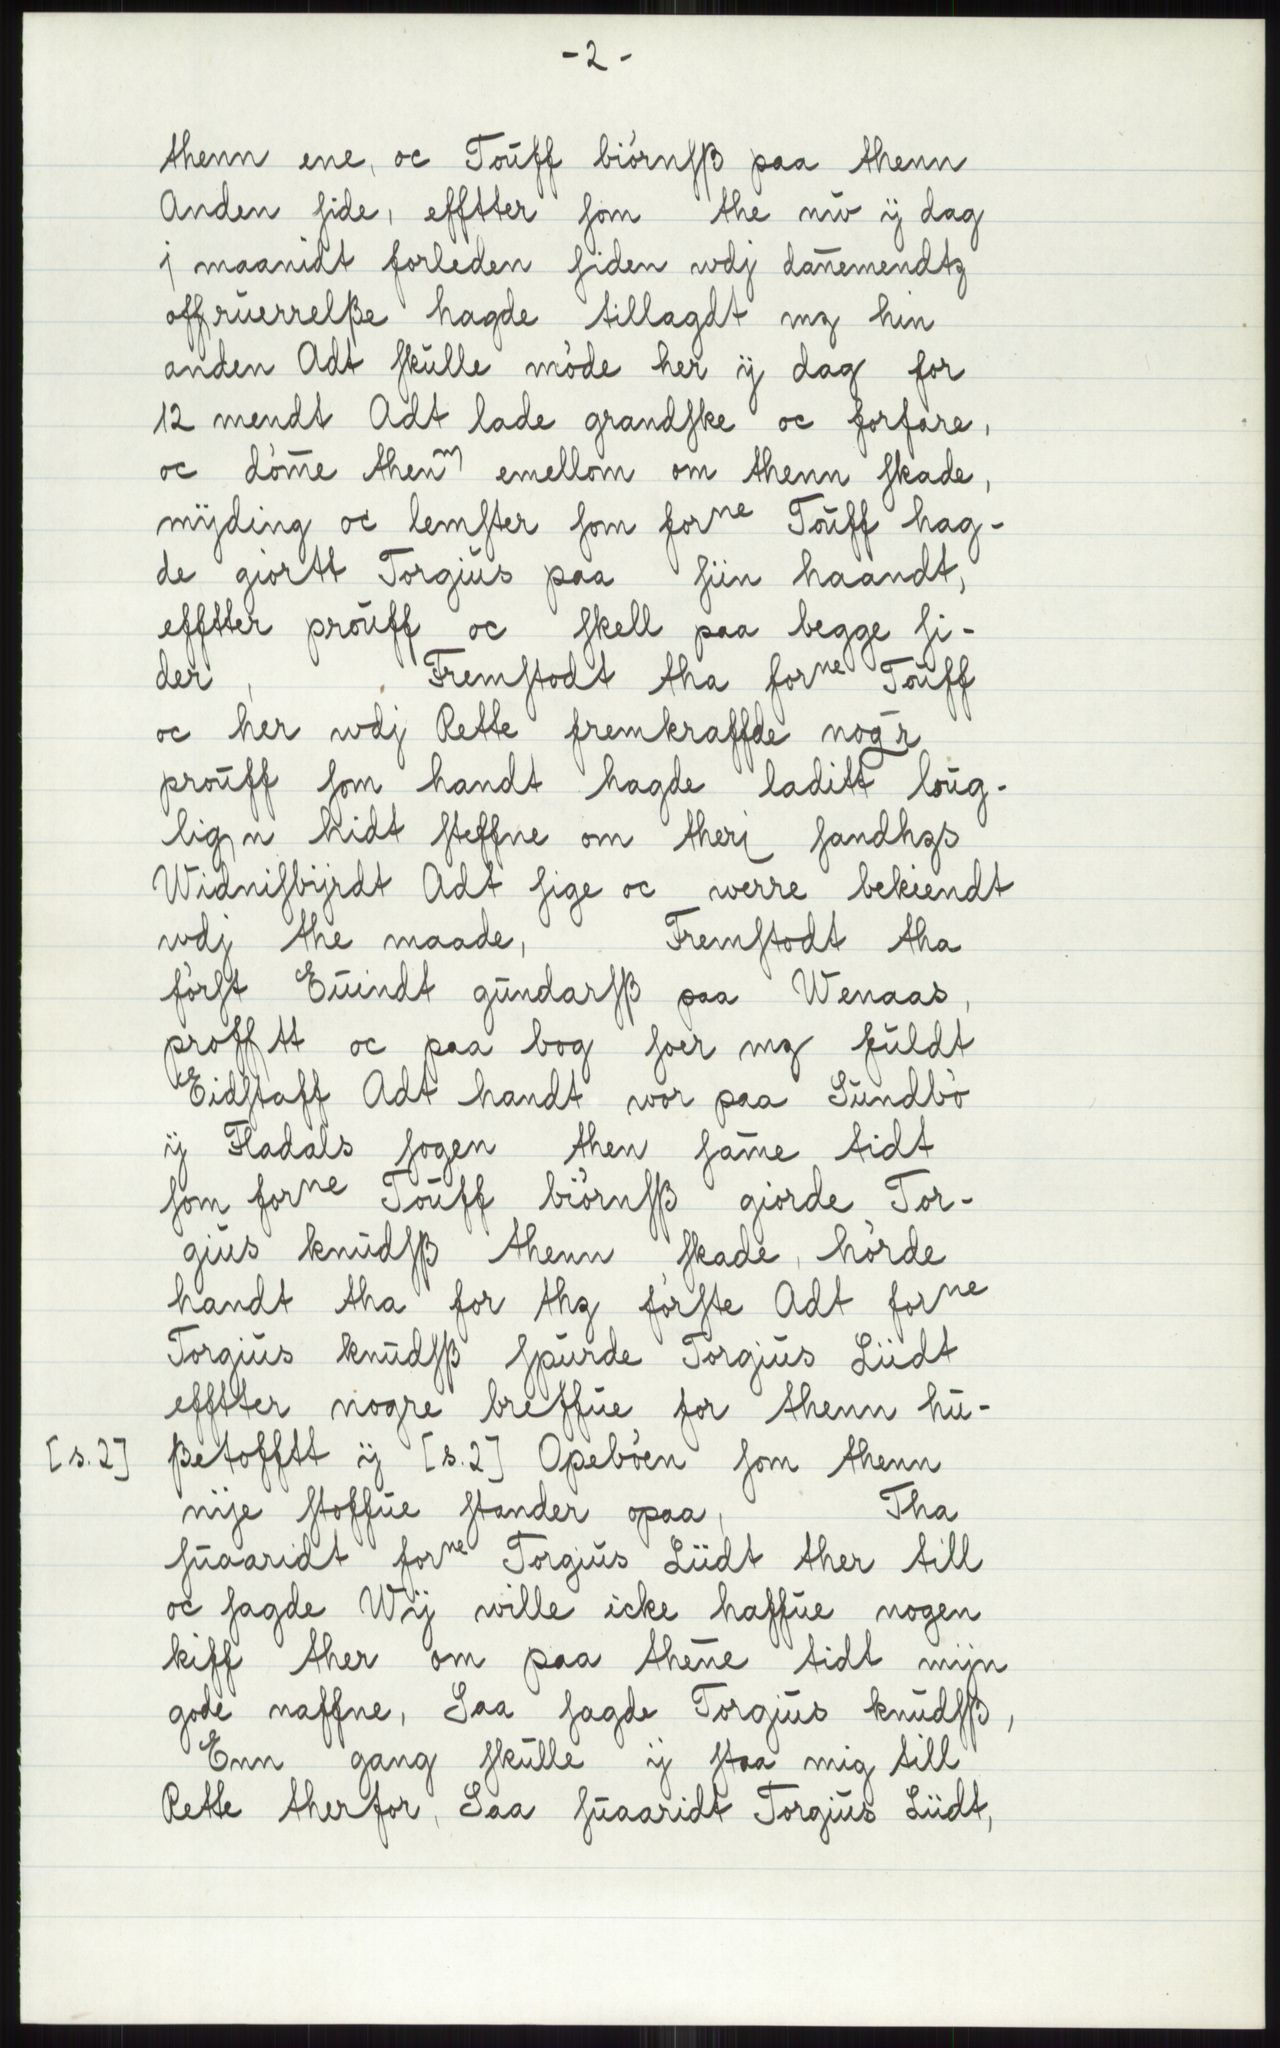 -2-
thenn ene, oc Toūff biórnſβ paa thenn
Anden ſide, efftter ſom the nw ÿ dag
j maanidt forleden ſiden wdj dan̄emendtz
offrūerrelβe hagde tillagdt mz hin
anden Adt ſkūlle móde her ÿ dag for
12 mendt Adt lade grandſke oc forfare,
oc dóm̄e thenᵐ emellom om thenn ſkade,
mÿding oc lemſter ſom forⁿᵉ Toūff hag-
de giortt Torgiūs paa ſiin haandt,
efftter proūff oc ſkell paa begge ſi-
der, Fremſtodt tha forⁿᵉ Toūff
oc her wdj Rette fremkraffde nogr
proūff ſom handt hagde laditt loūg-
lign hidt ſteffne om theri ſandhzs
Widniſbÿrdt Adt ſige oc werre bekiendt
wdj the maade, Fremſtodt tha
fórſt Eūindt gūndarſβ paa Wenaas,
proffitt oc paa bog ſoer mz fūldt
Eidſtaff Adt handt wor paa Sūndbó
ÿ Fladals ſogen then ſam̄e tidt
ſom forⁿᵉ Toūff biórnſβ giorde Tor-
giūs knūdſβ thenn ſkade, hórde
handt tha for thz fórſte Adt forⁿᵉ
Torgiūs knūdſβ ſpūrde Torgiūs Liidt
efftter nogre breffūe for thenn hū-
[s.2] βetofftt ÿ [s.2] Opebóen ſom thenn
nÿe ſtoffūe ſtander opaa, Tha
ſūaaridt forⁿᵉ Torgiūs Liidt ther till
oc ſagde Wÿ wille icke haffūe nogen
kiff ther om paa then̄e tidt mÿn
gode naffne, Saa ſagde Torgiūs knūdſβ,
Enn gang ſkūlle ÿ ſtaa mig till
Rette therfor, Saa ſūaaridt Torgiūs Liidt,